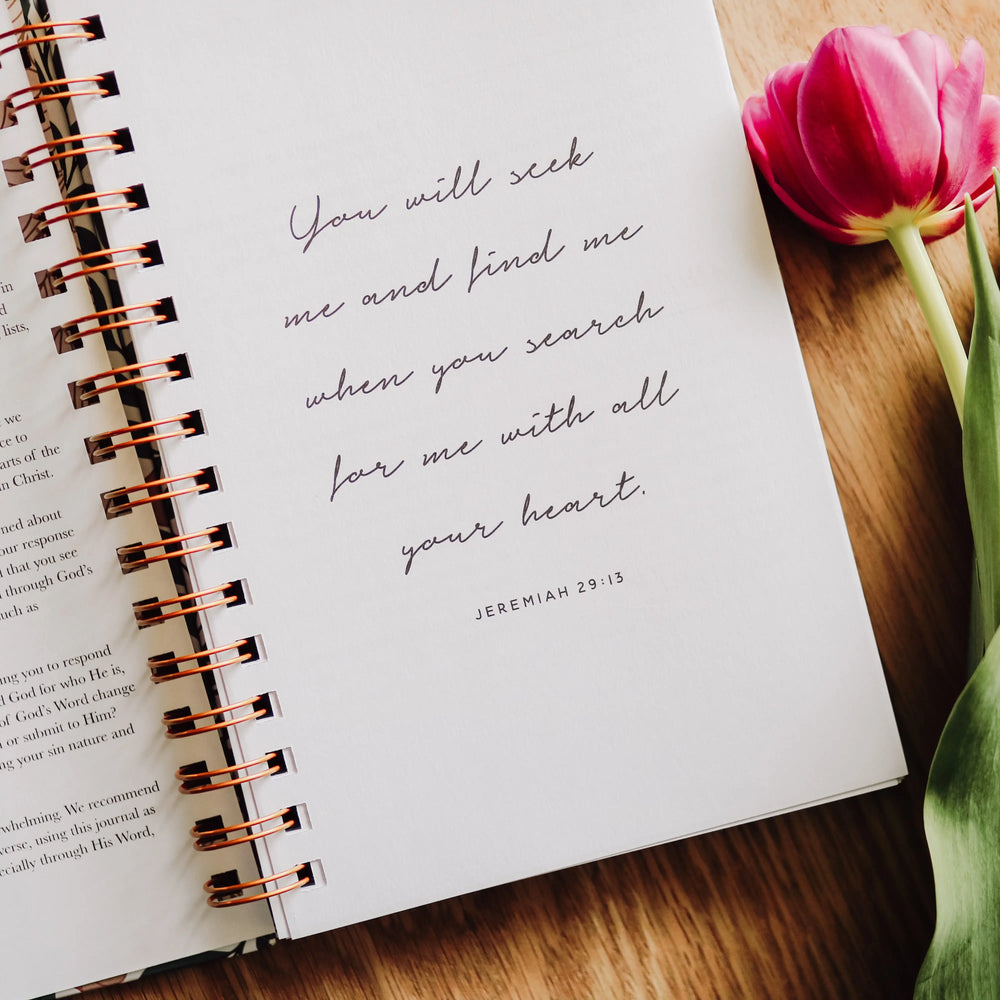 in
d
lists,
we
ce to
arts of the
n Christ.
ned about
our response
that you see
through God's
uch as
ng you to respond
d God for who He is,
of God's Word change
or submit to Him?
ng your sin nature and
whelming. We recommend
verse, using this journal as
ecially through His Word,
You will seek
me and find me
when you search
for me with all
your heart.
JEREMIAH 29:13